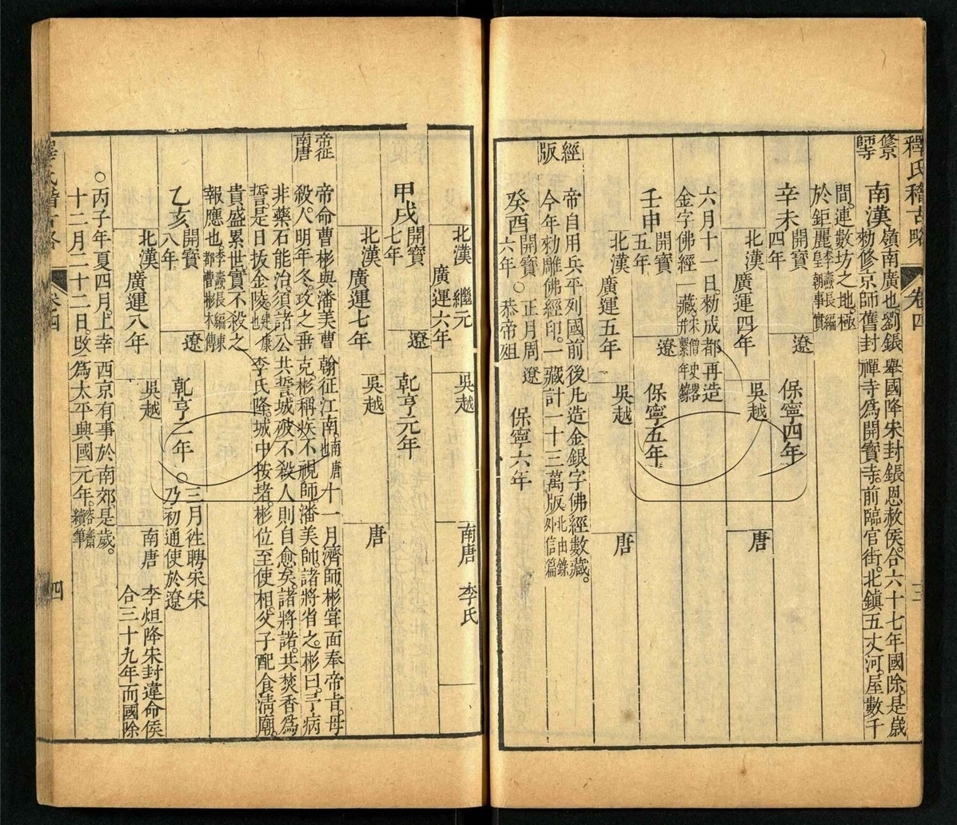 釋氏稽古略 卷四 三
纂
南漢嶺南廣也劉鋹舉國降宋封鋹恩赦侯合六十七年國除是歲
勑修京師舊封禪寺爲開寶寺前臨官街北鎮五丈河屋數千
間連數坊之地極
於鉅麗
辛未開寶四年 遼 保寧四年
北漢 廣運四年 吳越 唐
六月十一日勑成都再造
金字佛經一藏
壬申開寶五年 遼 保寧五年
北漢 廣運五年 吳越 唐
經版
帝自用兵平列國前後凡造金銀字佛經數藏
今年勑雕佛經印一藏計一十三萬版
癸酉開寶六年○正月周恭帝殂 保寧六年
北漢 繼元 廣運六年 吳越 南唐 李氏
甲戌開寶七年 遼 乾亨元年
北漢 廣運七年 吳越 唐
帝征南唐
帝命曹彬與潘美曹翰征江南南唐也十一月濟師彬甞面奉帝旨母
殺人明年冬攻之垂克彬稱疾不視師潘美帥諸將省之彬曰予病
非藥石能治須諸公共誓城破不殺人則自愈矣諸將諾共焚香爲
誓是日拔金陵 李氏降城中按堵彬位至使相父子配食淸廟
貴盛累世實不殺之
報應也
乙亥開寶八年 遼 乾亨之一年○三月徃聘宋宋乃初通使於遼
北漢 廣運八年 吳越 南唐 李煜降宋封違命侯合三十九年而國除
○丙子年夏四月上幸西京有事於南郊是歲
十二月二十二日改爲太平興國元年
卷四 四